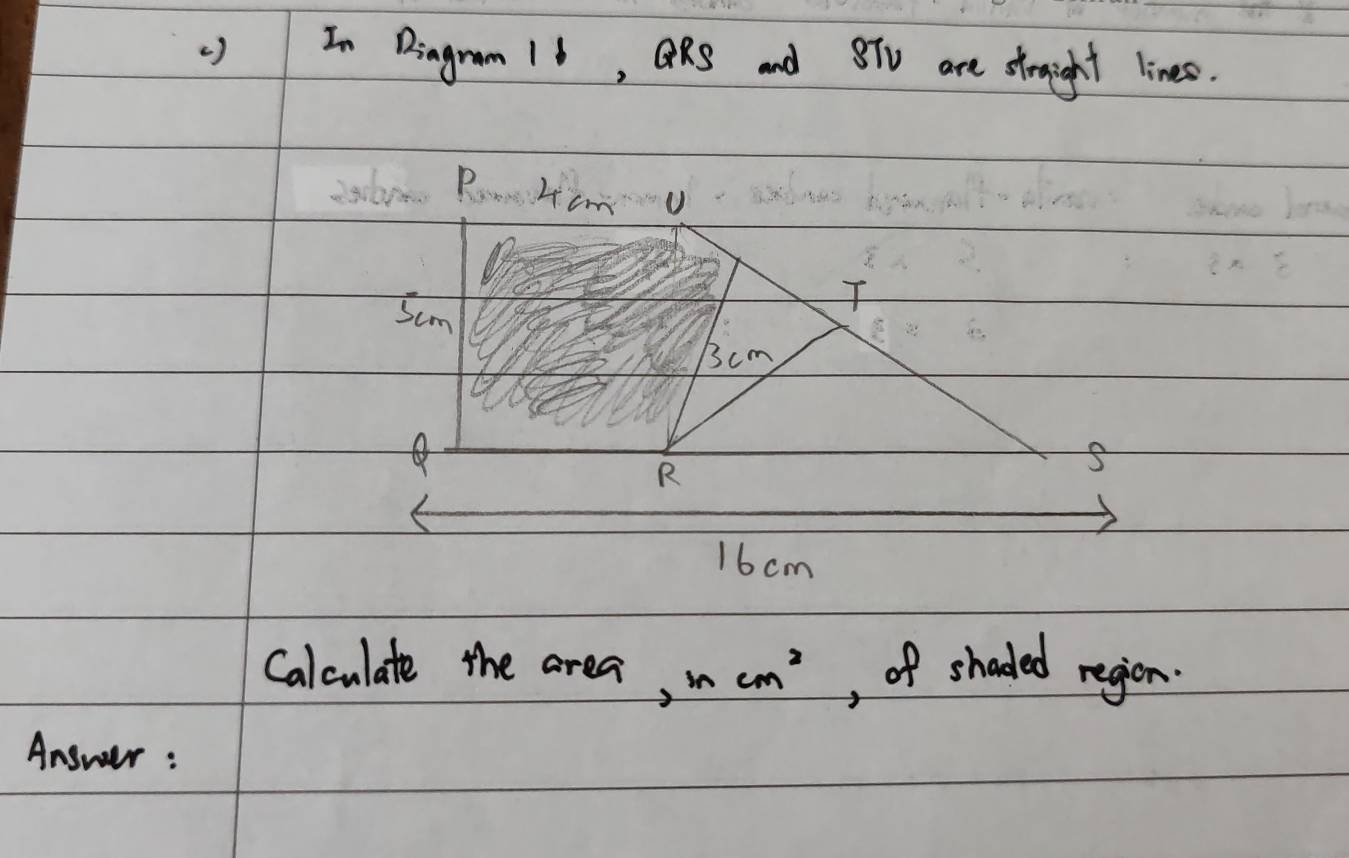 c) In Diagram 1b, QRS and STU are straight lines.
P 4cm U
T
5cm
3cm
Q R S
16cm
Calculate the area, in cm², of shaded region.
Answer: